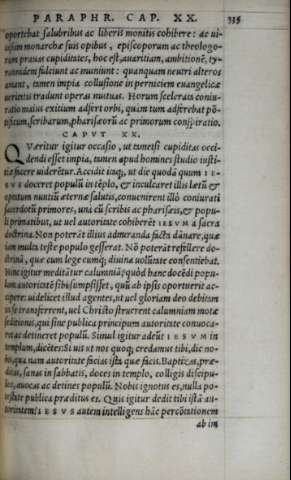 PARAPHR. CAP. XX. 335
oportebat salubribus ac liberis monitis cohibere: ac
ussim monarchæ suis opibus, episcoporum ac theologo-
rum prauas cupiditates, hoc est, auaritiam, ambitionē, ty-
rannidem fulciunt ac muniunt: quanquam neutri alteros
amant, tamen impia collusione in perniciem euangelicæ
ueritatis tradunt operas mutuas. Horum scelerata coniu-
ratio maius exitium adfert orbi, quàm tum adferebat pō-
tificum, scribarum, pharisæorū ac primorum conspiratio.
CAPVT XX.
QVæritur igitur occasio, ut tametsi cupiditas occi-
dendi esset impia, tamen apud homines studio iusti-
tiæ facere uiderētur. Accidit itaq;, ut die quodā quum IE-
SVS doceret populū in tēplo, & inculcaret illis lætū &
optatum nuntiū æternæ salutis, conuenirent illò coniurati
sacerdotū primores, unà cū scribis ac pharisæis, & popu-
li primatibus, ut uel autoritate cohiberēt IESVM à sacra
doctrina. Non poterāt illius admiranda facta dānare, quæ
iam multa teste populo gesserat. Nō poterāt refellere do-
ctrinā, quæ cum lege cumq; diuina uolūtate consentiebat.
Hinc igitur meditātur calumniā, quòd hanc docēdi popu-
lum autoritatē sibi sumpsisset, quū ab ipsis oportuerit acci-
pere: uidelicet illud agentes, ut uel gloriam deo debitam
in se transferrent, uel Christo struerent calumniam motæ
seditionis, qui sine publica principum autoritate conuoca-
ret ac detineret populū. Simul igitur adeūt IESVM in
templum, dicētes: Si uis ut nos quoq; credamus tibi, dic no-
bis, qua nam autoritate facias ista quæ facis. Baptizas, præ-
dicas, sanas in sabbatis, doces in templo, colligis discipu-
los, auocas ac detines populū. Nobis ignotus es, nulla po-
testate publica præditus es. Quis igitur dedit tibi istā au-
toritatem? IESVS autem intelligens hāc percōtationem
ab im